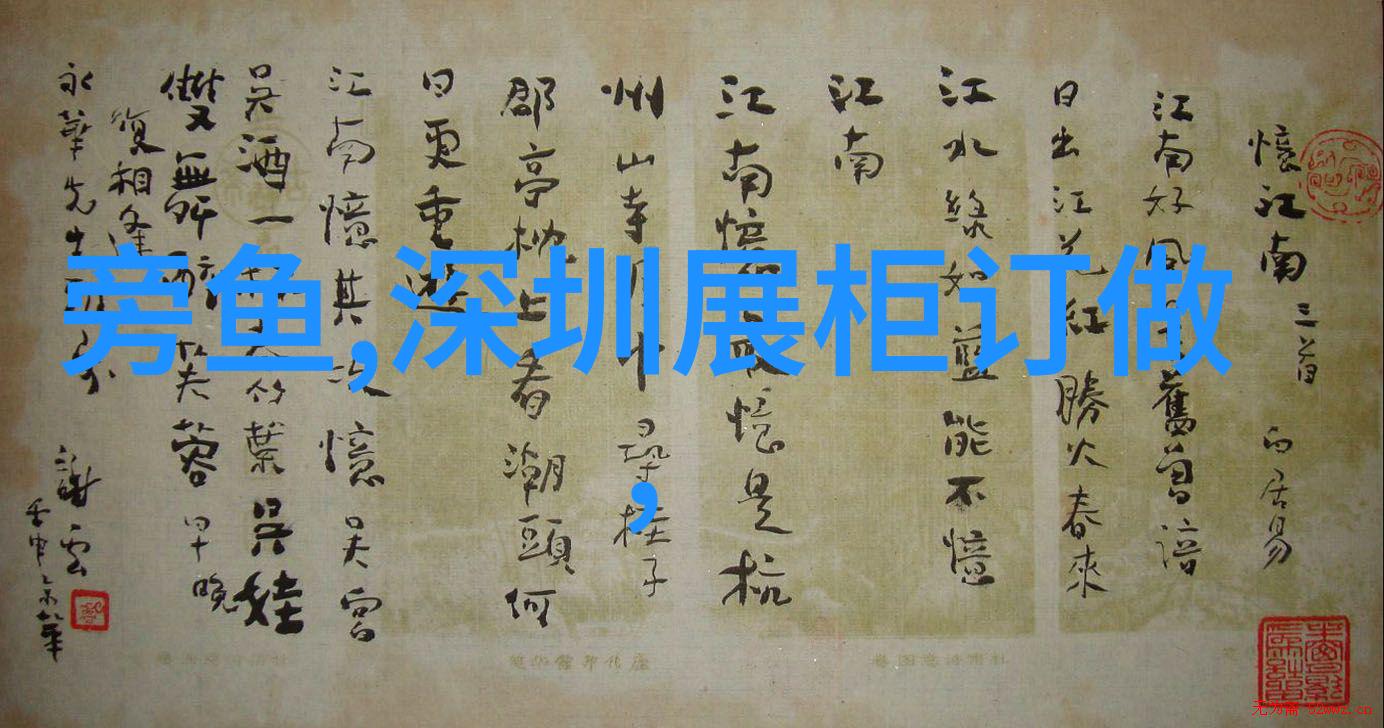 旁鱼,深圳展柜订做
,
憶江南 三首 白居易
江南好風舊曾諳
日出江花紅勝火春來
江水綠如藍能不憶
江南
江南憶最憶是杭
州山寺月中尋桂子
郡亭枕上看潮頭何
日更重遊
江南憶其次憶吳宮
吳酒一杯春竹葉吳娃
雙無芙蓉早晚
復相逢
永華先生
謝雲
壬申京華
无为斋 52wwz.cn